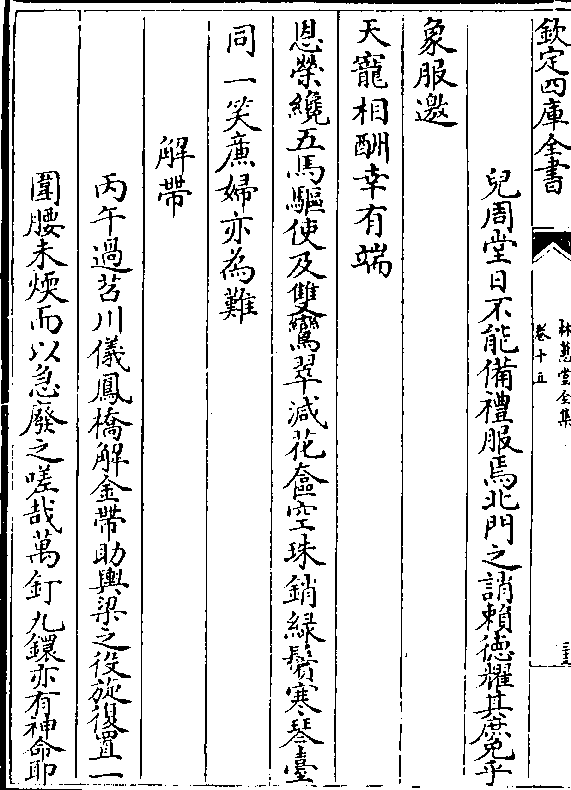 欽定四庫全書
林蕙堂全集
卷十五
兒周堂日不能備禮服焉北門之誚賴徳耀其庶免乎
象服邀
天寵相酬幸有端
恩榮纔五馬驅使及雙鸞翠減花奩空珠銷緑鬢寒琴臺
同一笑㢘婦亦為難
解帶
丙午過苕川儀鳳橋解金帶助輿梁之役旋復置一
圍腰未煗而以急廢之嗟哉萬釘九鐶亦有神命耶